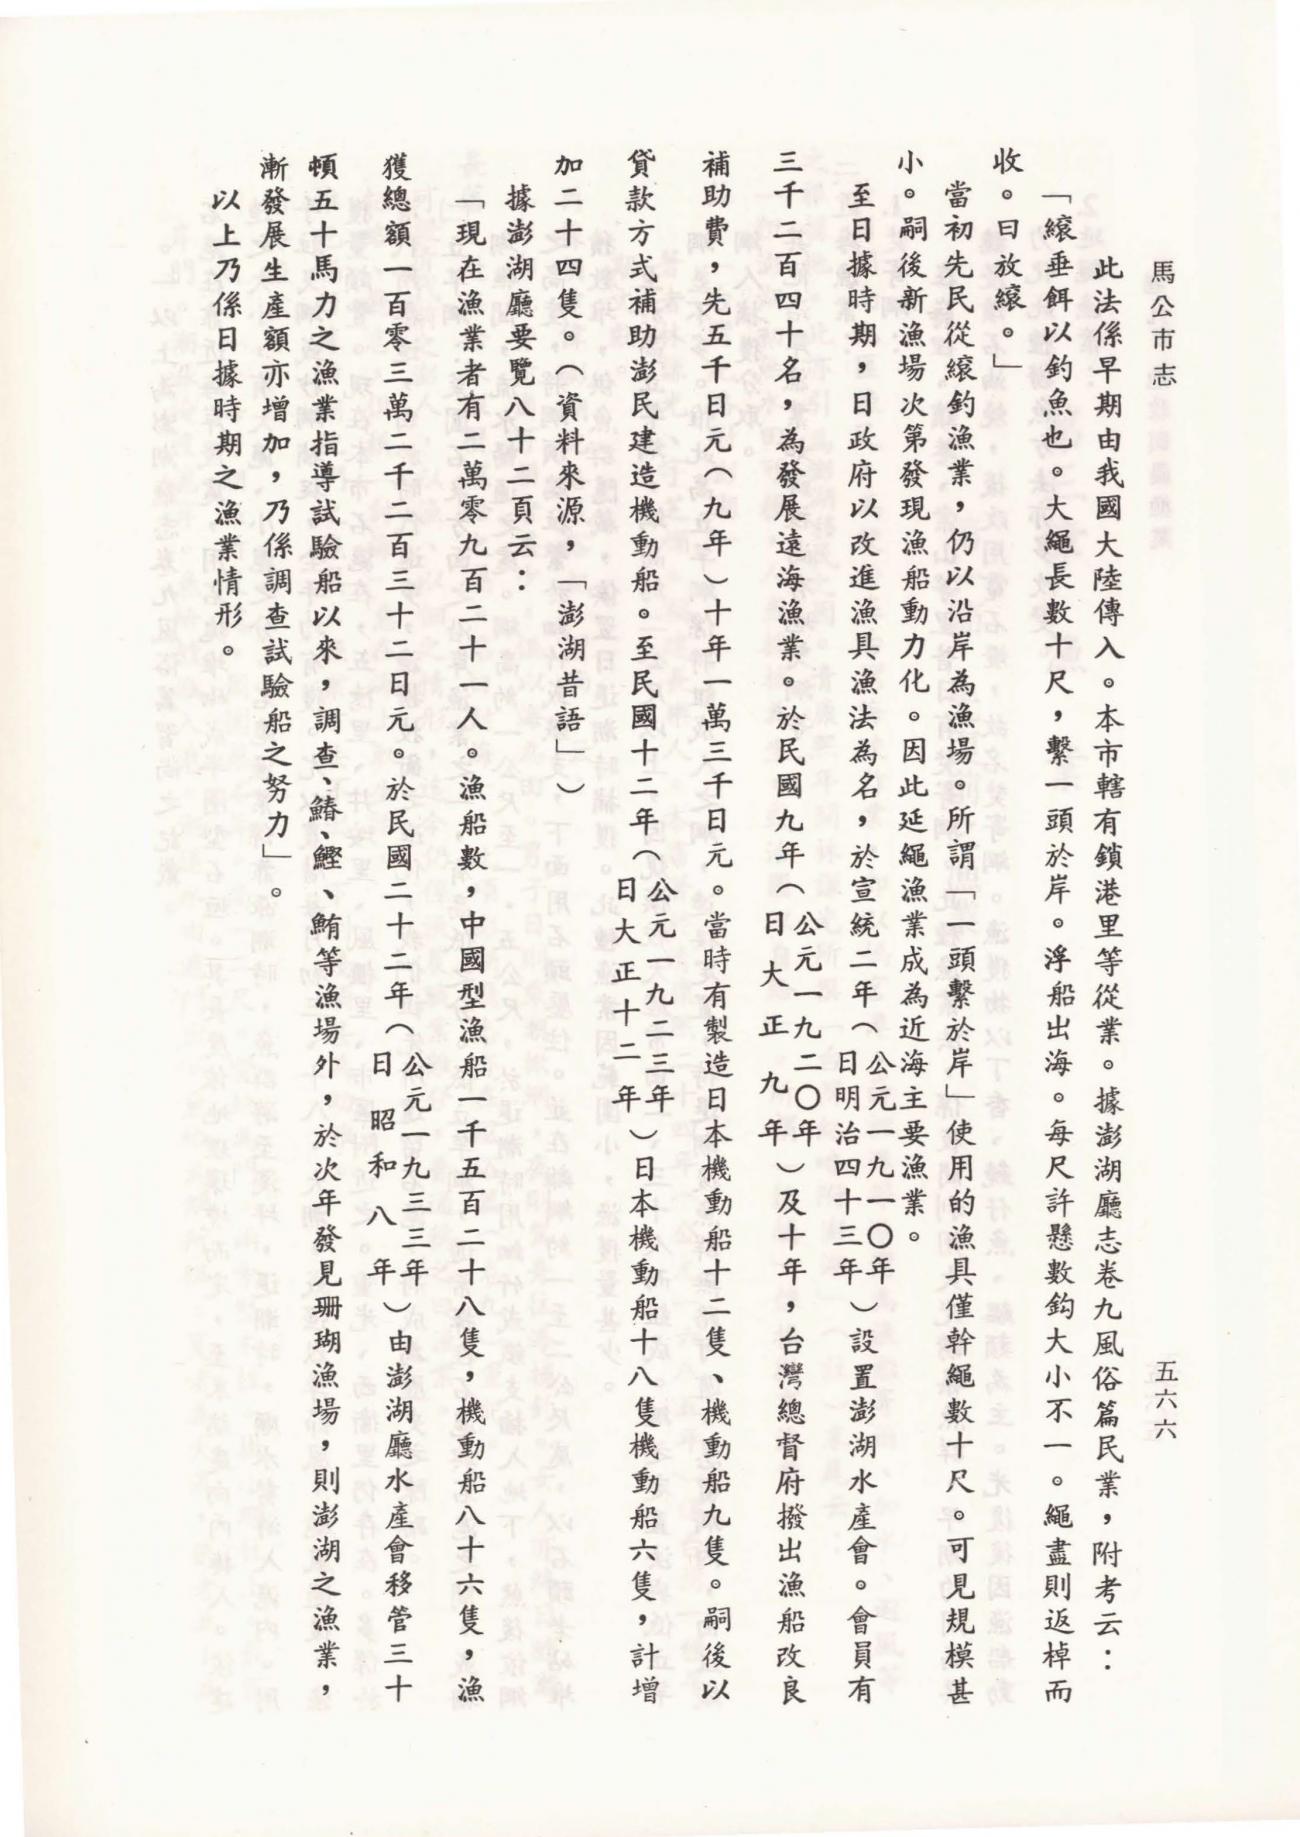 馬公市志
五六六
此法係早期由我國大陸傳入。本市轄有鎖港里等從業。據澎湖廳志卷九風俗篇民業，附考云：
「緄垂餌以釣魚也。大繩長數十尺，繫一頭於岸。浮船出海。每尺許懸數鈎大小不一。繩盡則返棹而
收。曰放緄。」
當初先民從緄釣漁業，仍以沿岸為漁場。所謂「一頭繫於岸」使用的漁具僅幹繩數十尺。可見規模甚
小。嗣後新漁場次第發現漁船動力化。因此延繩漁業成為近海主要漁業。
至日據時期，日政府以改進漁具漁法為名，於宣統二年（公元一九一〇年日明治四十三年）設置澎湖水產會。會員有
三千二百四十名，為發展遠海漁業。於民國九年（公元一九二〇年日大正九年）及十年，台灣總督府撥出漁船改良
補助費，先五千日元（九年）十年一萬三千日元。當時有製造日本機動船十二隻、機動船九隻。嗣後以
貸款方式補助澎民建造機動船。至民國十二年（公元一九二三年日大正十二年）日本機動船十八隻機動船六隻，計增
加二十四隻。（資料來源，「澎湖昔語」）
據澎湖廳要覽八十二頁云：
「現在漁業者有二萬零九百二十一人。漁船數，中國型漁船一千五百二十八隻，機動船八十六隻，漁
獲總額一百零三萬二千二百三十二日元。於民國二十二年（公元一九三三年日昭和八年）由澎湖廳水產會移管三十
頓五十馬力之漁業指導試驗船以來，調查、鰆、鰹、鮪等漁場外，於次年發見珊瑚漁場，則澎湖之漁業，
漸發展生產額亦增加，乃係調查試驗船之努力」。
以上乃係日據時期之漁業情形。